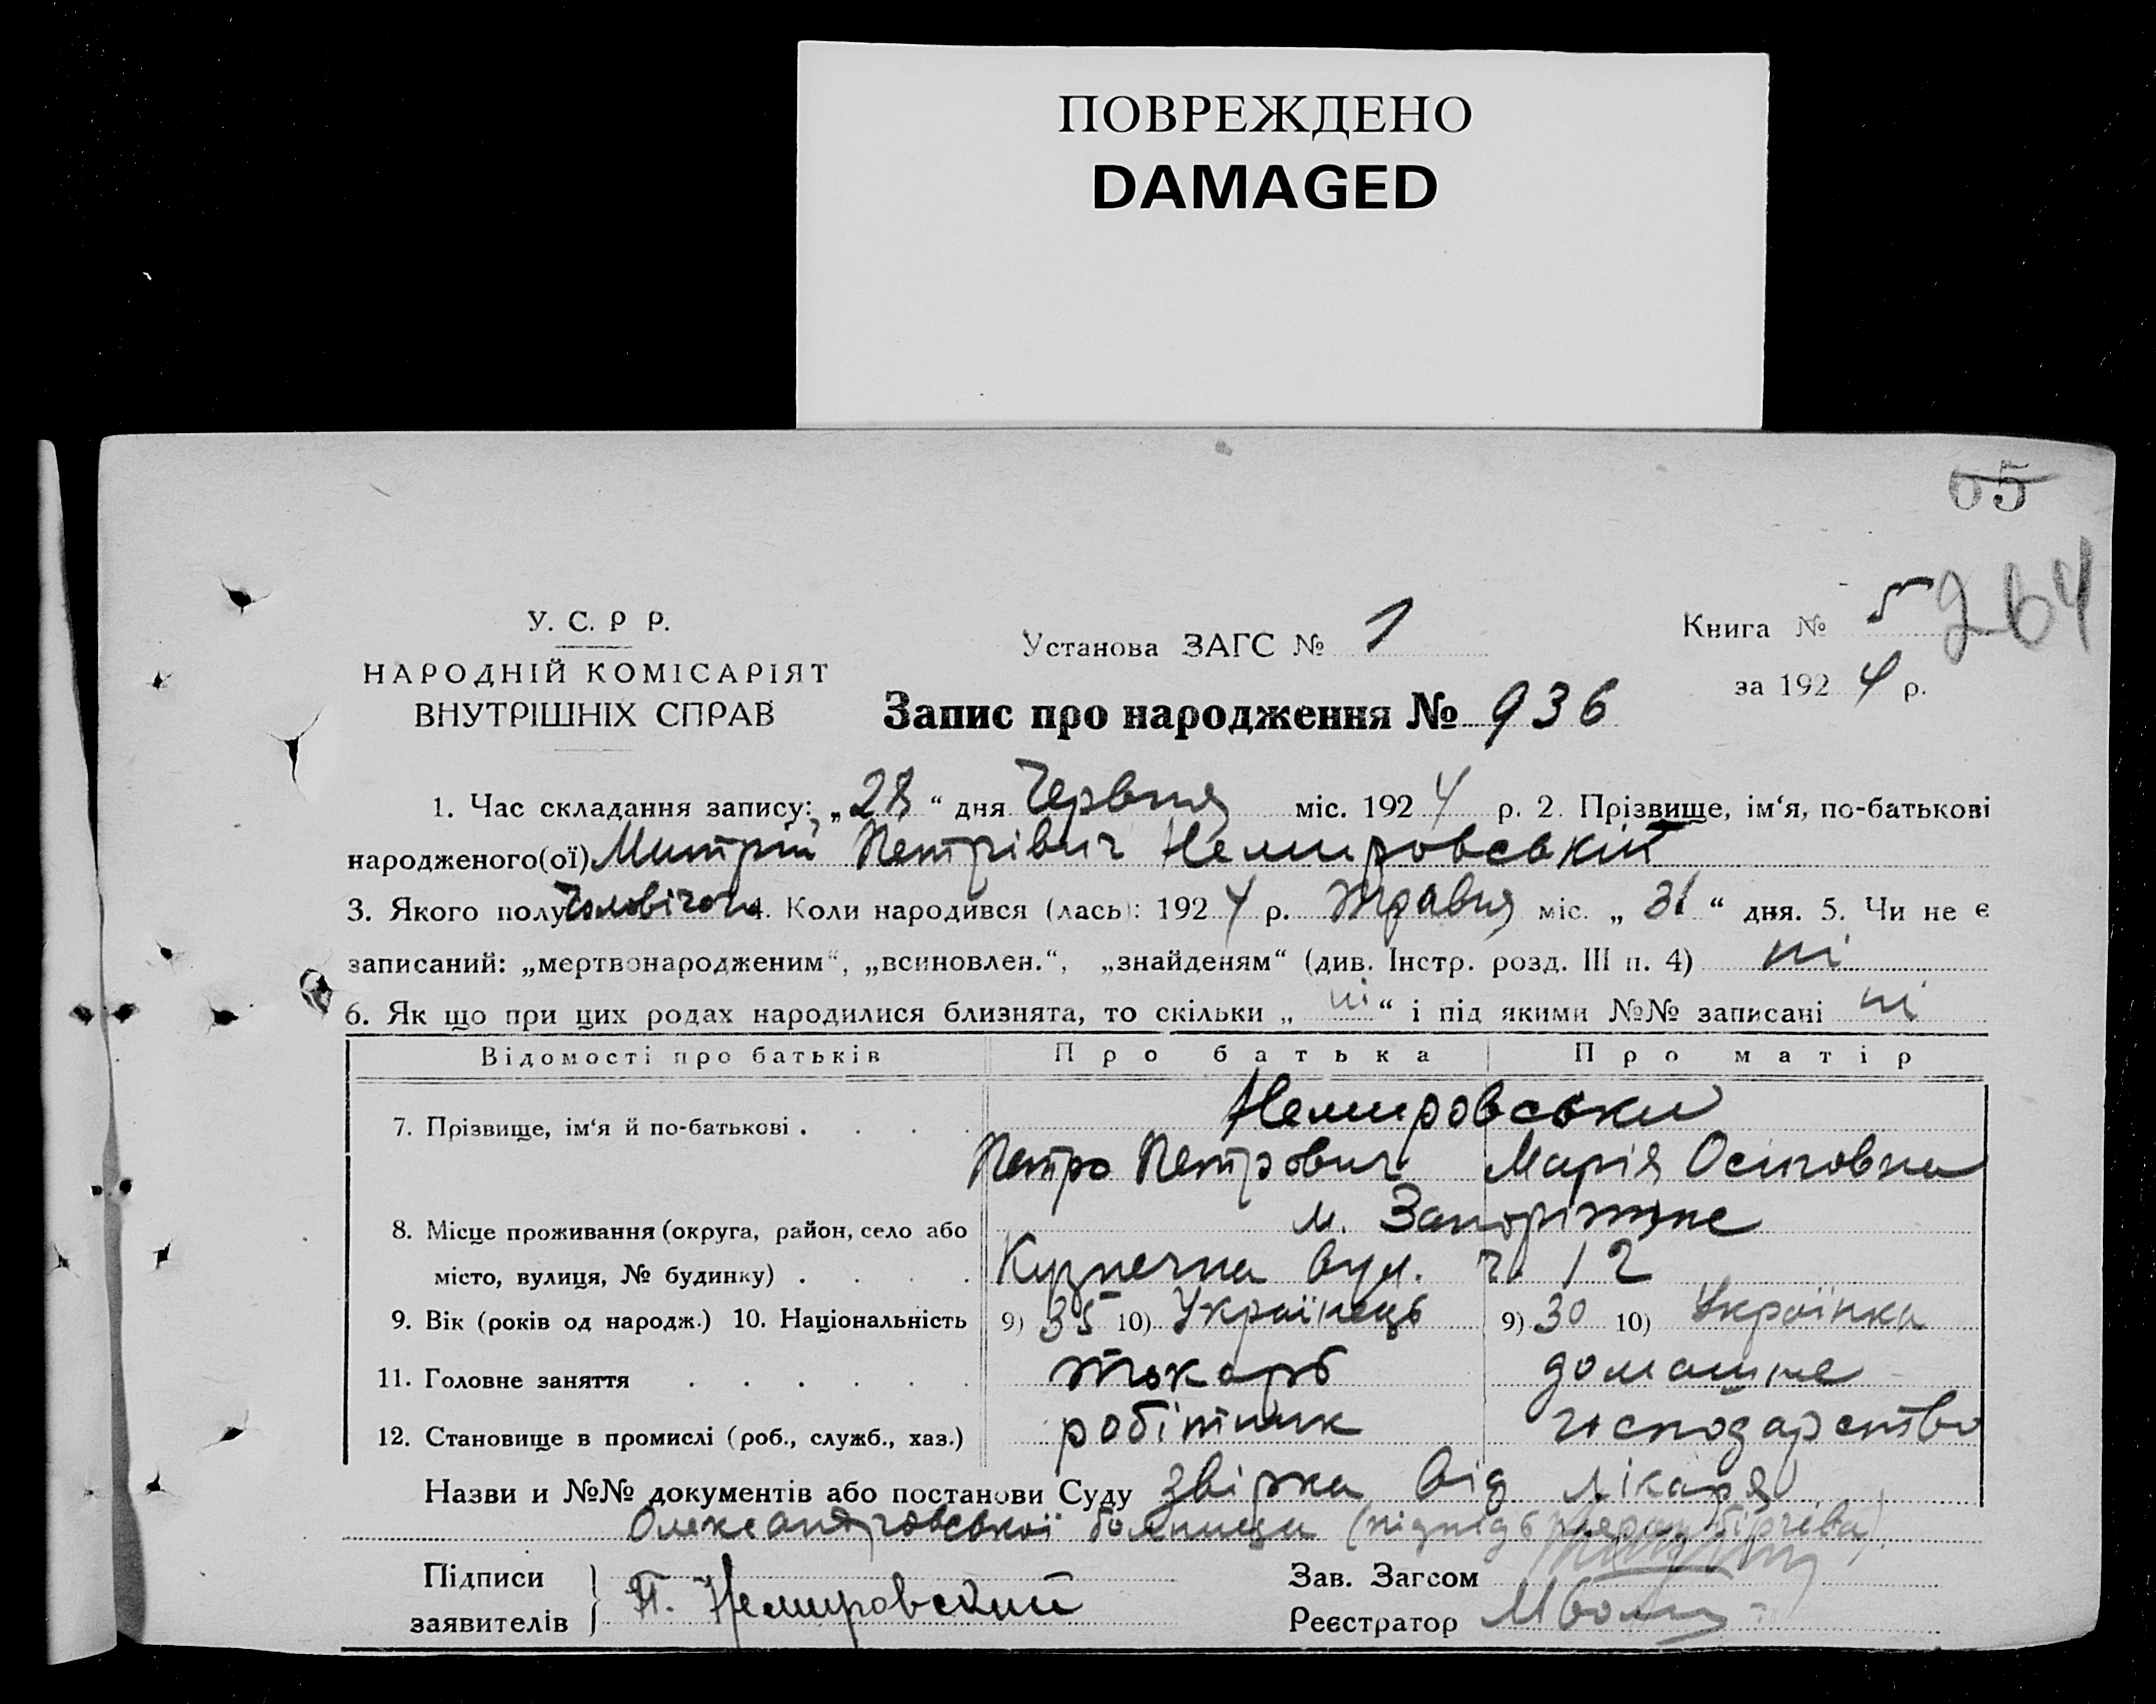 ПОВРЕЖДЕНО
DAMAGED
65
264
У. С. Р Р.
НАРОДНІЙ КОМІСАРІЯТ
ВНУТРІШНІХ СПРАВ
Установа ЗАГС № 1
Книга № 5
за 1924 р.
Запис про народження № 936
1. Час складання запису: „28“ дня Червня міс. 1924 р. 2. Прізвище, ім‘я, по-батькові
народженого(ої) Митрій Петрівич Немировський
3. Якого полу чоловічого 4. Коли народився (лась): 1924 р. травня міс. „31“ дня. 5. Чи не є
записаний: „мертвонародженим“, „всиновлен.“, „знайденям“ (див. Інстр. розд. III п. 4) ні
6. Як що при цих родах народилися близнята, то скільки „ні“ і під якими №№ записані ні
Відомості про батьків Про батька Про матір
7. Прізвище, ім‘я й по-батькові . . . . Немировськи
Петро Петрович Марія Осиповна
8. Місце проживання (округа, район, село або м. Запоріжжє
місто, вулиця, № будинку) . . . . Кузнечна вул. ч. 12
9. Вік (років од народж.) 10. Національність 9) 35 10) Українець 9) 30 10) Українка
11. Головне заняття . . . . . . токарь домашне
12. Становище в промислі (роб., служб., хаз.) робітник господарство
Назви и №№ документів або постанови Суду звірка від лікаря
Олександровської больници (підпідь
Підписи
заявителів } П. Немировский
Зав. Загсом
Реєстратор